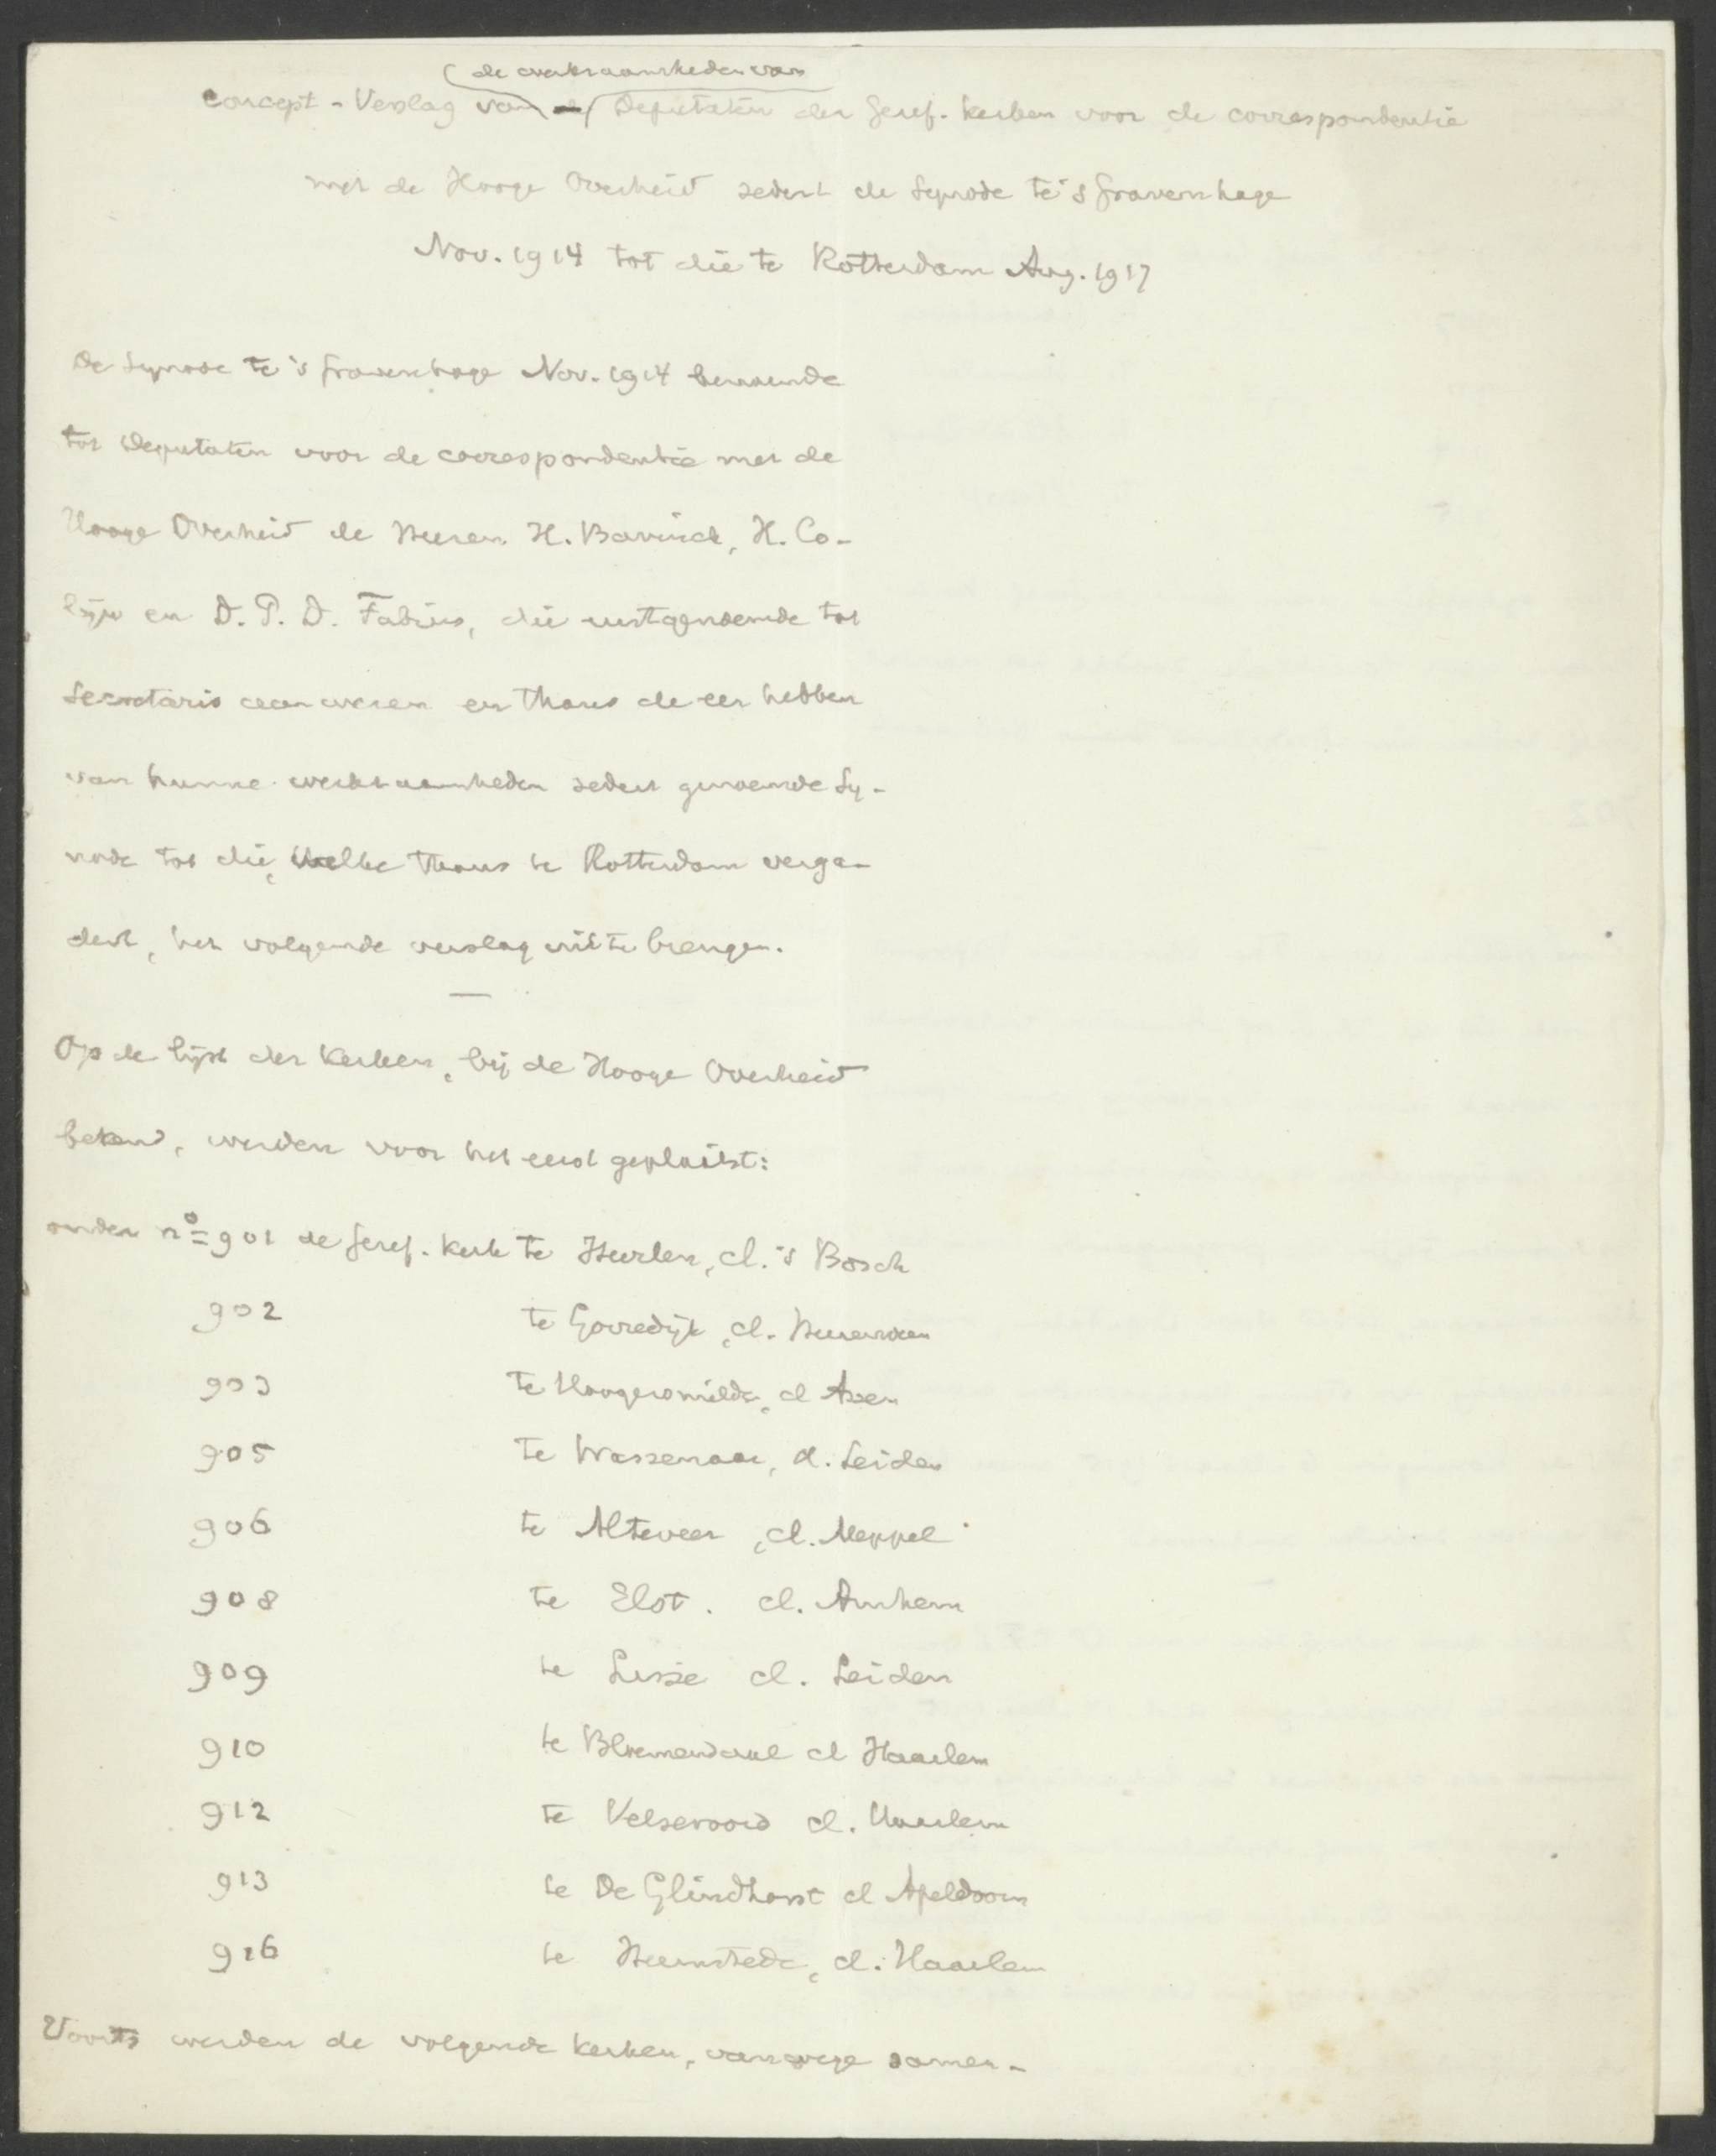 de werkzaamheden van
Concept-Verslag van de Deputaten der Geref. Kerken voor de correspondentie
met de Hooge Overheid sedert de Synode te 's Gravenhage
Nov. 1914 tot die te Rotterdam Aug. 1917
De Synode te 's Gravenhage Nov. 1914 benoemde
tot Deputaten voor de correspondentie met de
Hooge Overheid de Heeren H. Bavinck, H. Co-
lijn en D. P. D. Fabius, die eerstgenoemde tot
Secretaris aanwezen en thans de eer hebben
van hunne werkzaamheden sedert genoemde Sy-
node tot die, welke thans te Rotterdam verga-
dert, het volgende verslag uit te brengen.
Op de lijst der Kerken, bij de Hooge Overheid
bekend, werden voor het eerst geplaatst:
onder no 901 de Geref. Kerk te Heerlen, cl. 's Bosch
902 te Gorredijk, cl. Heerenveen
903 te Hoogersmilde, cl Assen
905 te Wassenaar, cl. Leiden
906 te Alteveer, cl. Meppel
908 te Elst. cl. Arnhem
909 te Lisse cl. Leiden
910 te Bloemendaal cl Haarlem
912 te Velseroord cl. Haarlem
913 te De Glindhorst cl Apeldoorn
916 te Heemstede, cl. Haarlem
Voorts werden de volgende kerken, vanwege samen-